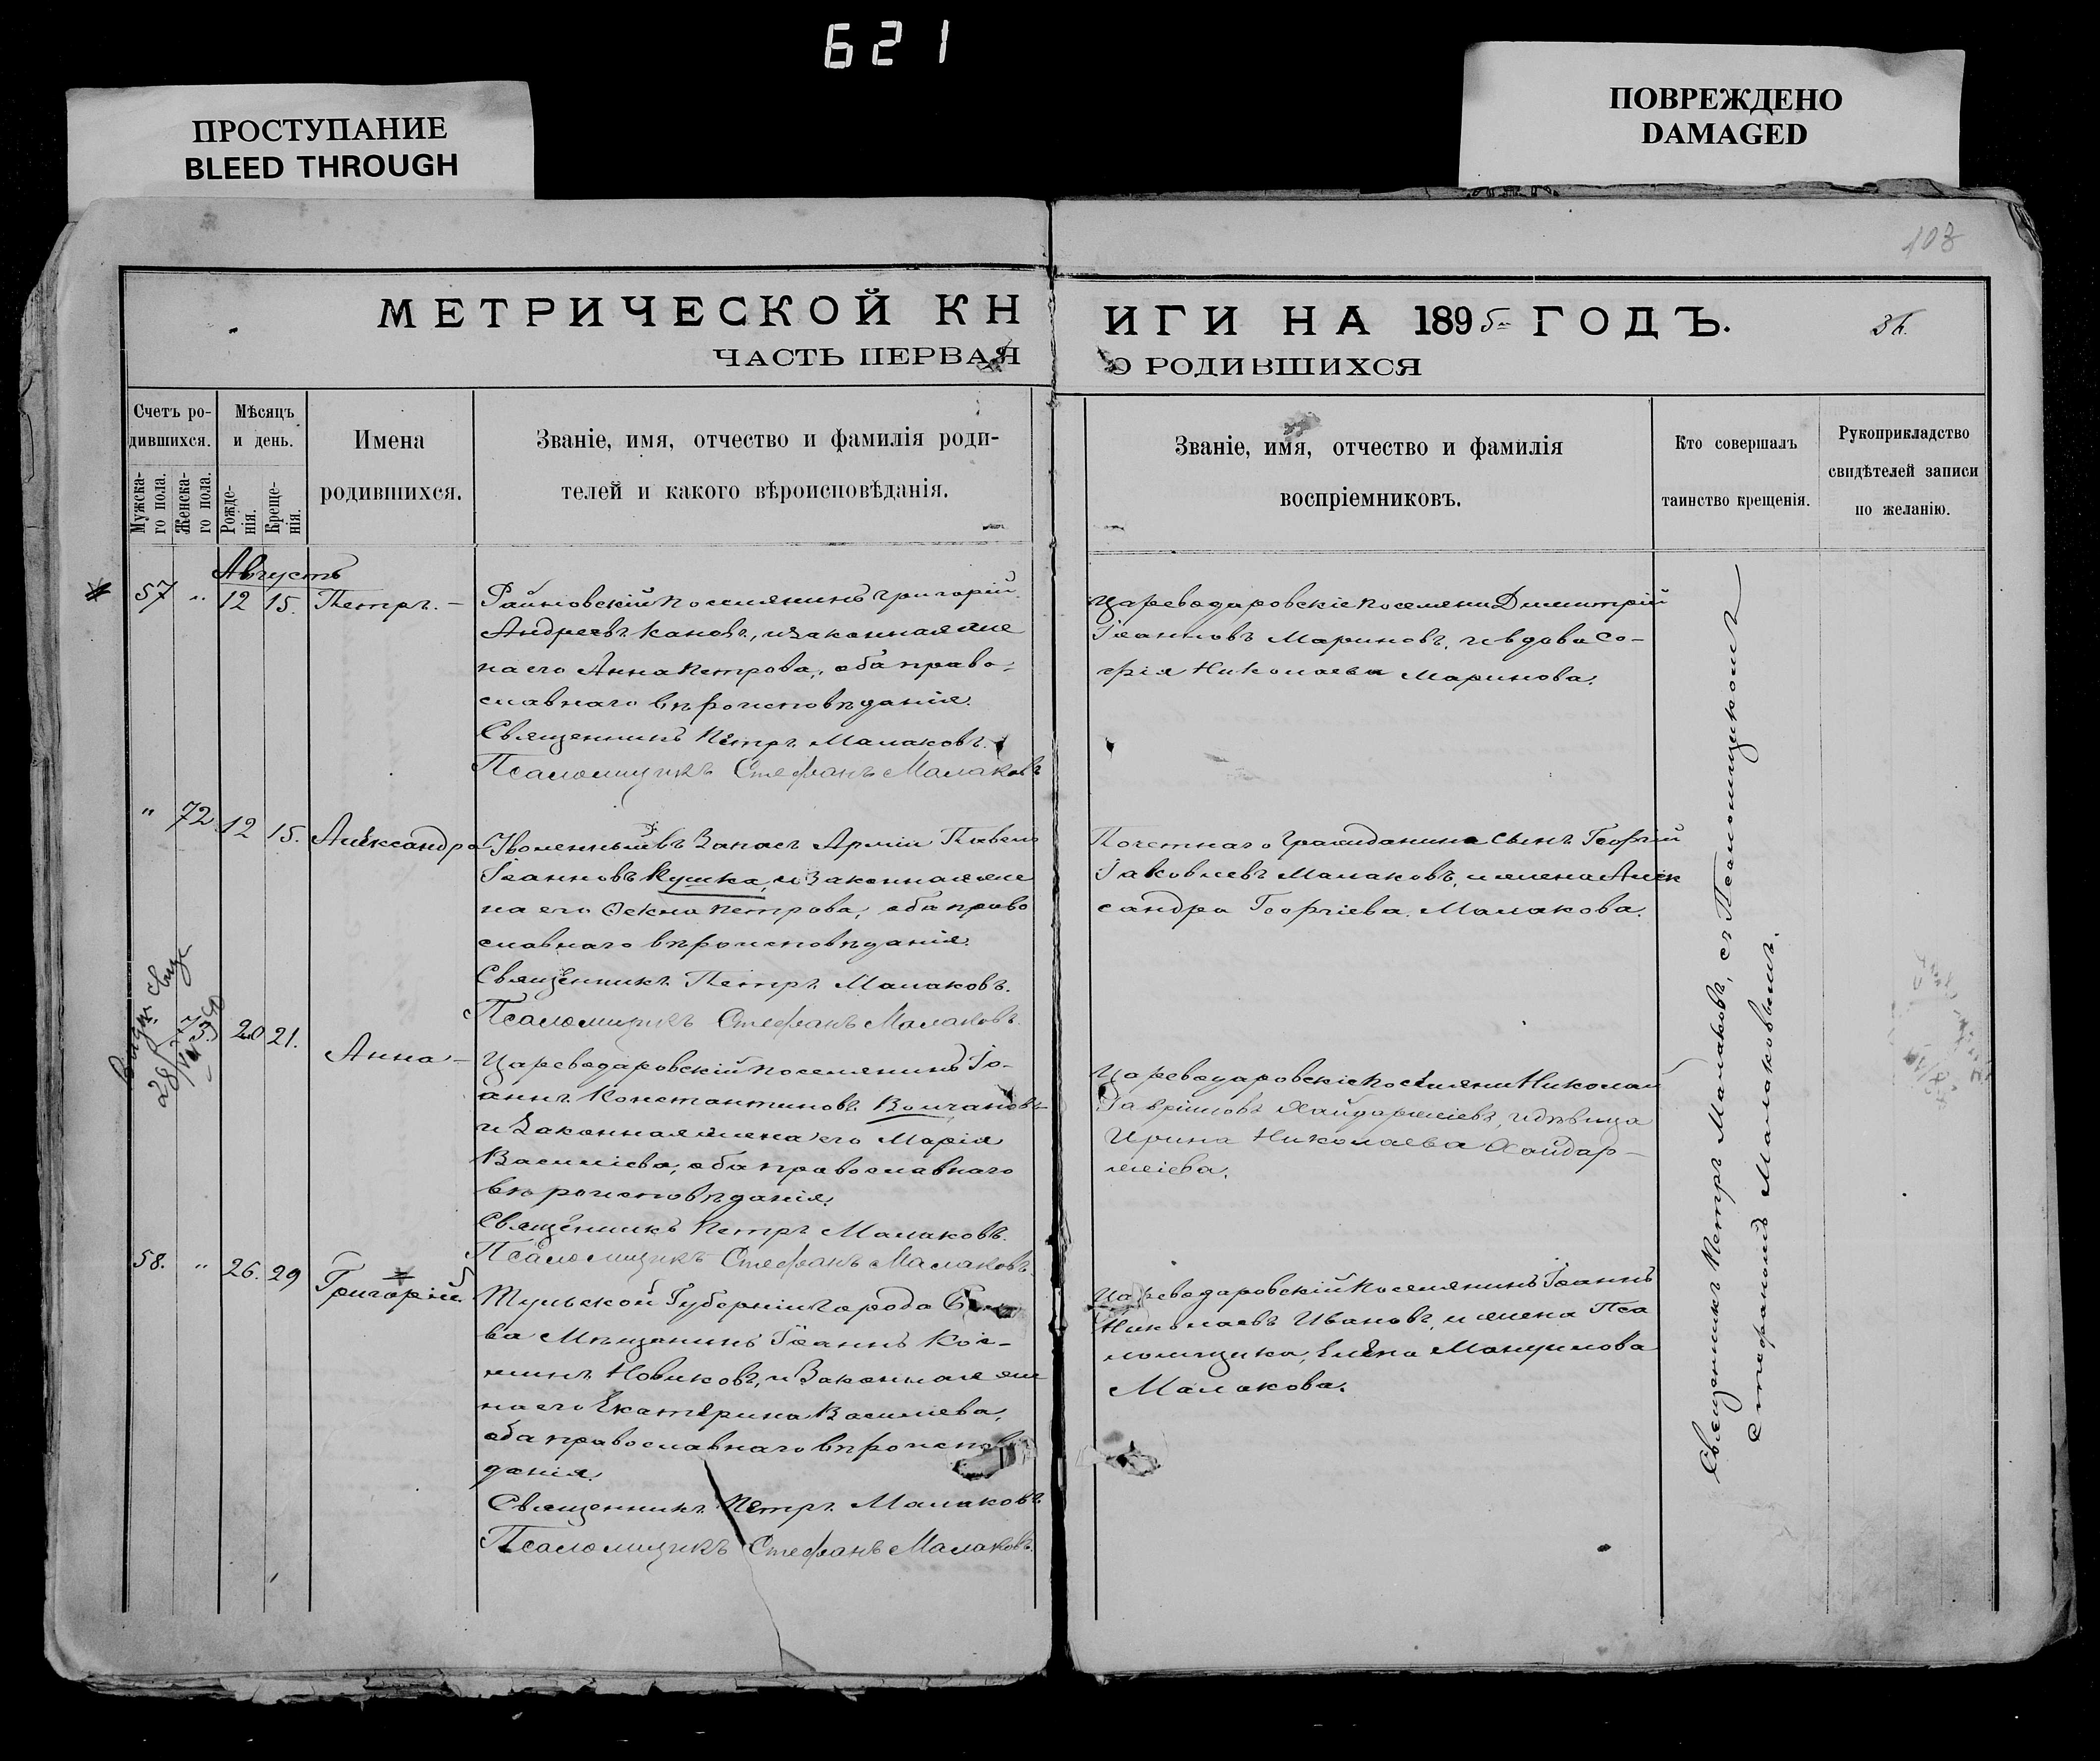 621
ПРОСТУПАНИЕ
BLEED THROUGH
ПОВРЕЖДЕНО
DAMAGED
103
МЕТРИЧЕСКОЙ КН
ИГИ НА 1895 ГОДЪ.
ЧАСТЬ ПЕРВАЯ
О РОДИВШИХСЯ
Счетъ ро-
дившихся.
Мужска-
го пола.
Женска-
го пола.
Мѣсяцъ
и день.
Рожде-
нія.
Креще-
нія.
Имена
родившихся.
Званіе, имя, отчество и фамилія роди-
телей и какого вѣроисповѣданія.
Званіе, имя, отчество и фамилія
воспріемниковъ.
Кто совершалъ
таинство крещенія.
Рукоприкладство
свидѣтелей записи
по желанію.
Августъ
57 " 12 15. Петръ. –
Райновскій поселянинъ Григорій
Андреевъ Кановъ, и законная же
на его Анна Петрова, оба право-
славнаго вѣроисповѣданія.
Священникъ Петръ Малаковъ.
Псаломщикъ Стефанъ Малаковъ
Цареведаровскіе поселяни Димитрій
Іоанновъ Мариновъ, и вдова Со-
фія Николаева Маринова.
" 72 12 15. Александра
Уволенный въ Запасъ Арміи Павелъ
Іоанновъ Кушка, и Законная же
на его Ѳекла Петрова, оба право
славнаго вѣроисповѣданія.
Священникъ Петръ Малаковъ.
Псаломщикъ Стефанъ Малаковъ.
Почетнаго Гражданина Сынъ Георгій
Іаковлевъ Малаковъ, и жена Алек
сандра Георгіева Малакова.
73. 20 21. Анна –
Цареведаровскій поселянинъ Іо-
аннъ Константиновъ Волчановъ
и Законная жена его Марія
Василіева, оба православнаго
вѣроисповѣданія.
Священникъ Петръ Малаковъ.
Псаломщикъ Стефанъ Малаковъ.
Цареведаровскіе Поселяни Николай
Гавріиловъ Хайдаржіевъ, и дѣвица
Ирина Николаева Хайдар-
жіева.
58. " 26. 29 Григорій.
Тульской Губерніи города
ва Мѣщанинъ Іоаннъ Коз-
минъ Новиковъ, и Законная же
на его Екатерина Василиева,
оба православнаго вѣроисповѣ
данія.
Священникъ Петръ Малаковъ
Псаломщикъ Стефанъ Малаковъ.
Цареведаровскій Поселянинъ Іоаннъ
Николаевъ Ивановъ, и жена Пса
ломщика, Елена
Малакова.
Священникъ Петръ Малаковъ, съ Псаломщикомъ
Стефаномъ Малаковымъ.